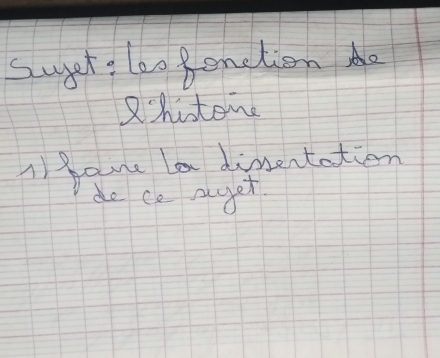 Sujet : les fonction de
l'histoire
1) faire la dissertation
de ce sujet.